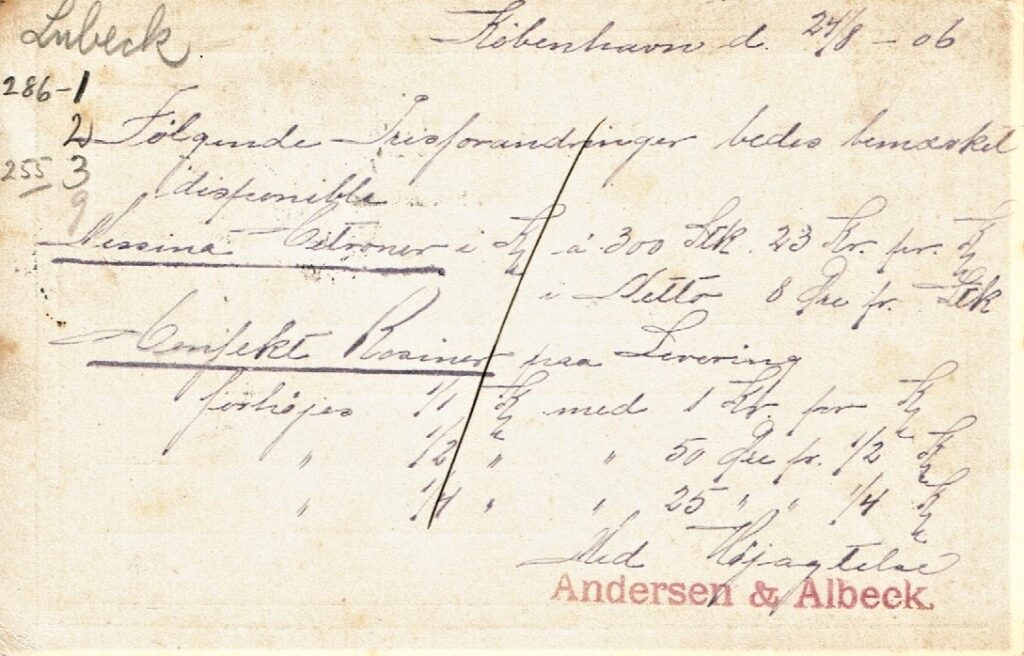 Lubeck
København d. 27/8 - 06
286-1
2
Følgende Prisforandringer bedes bemærket
255 3
disponible
9
Messina Citroner i Ks à 300 Stk. 23 Kr. pr. Ks
i Netto 8 Øre pr. Stk
Confekt Rosiner paa Levering
forhøjes 1/1 Ks med 1 Kr. pr Ks
" 1/2 " " 50 Øre pr. 1/2 Ks
" 1/4 " " 25 " " 1/4 Ks
Med Højagtelse
Andersen & Albeck.